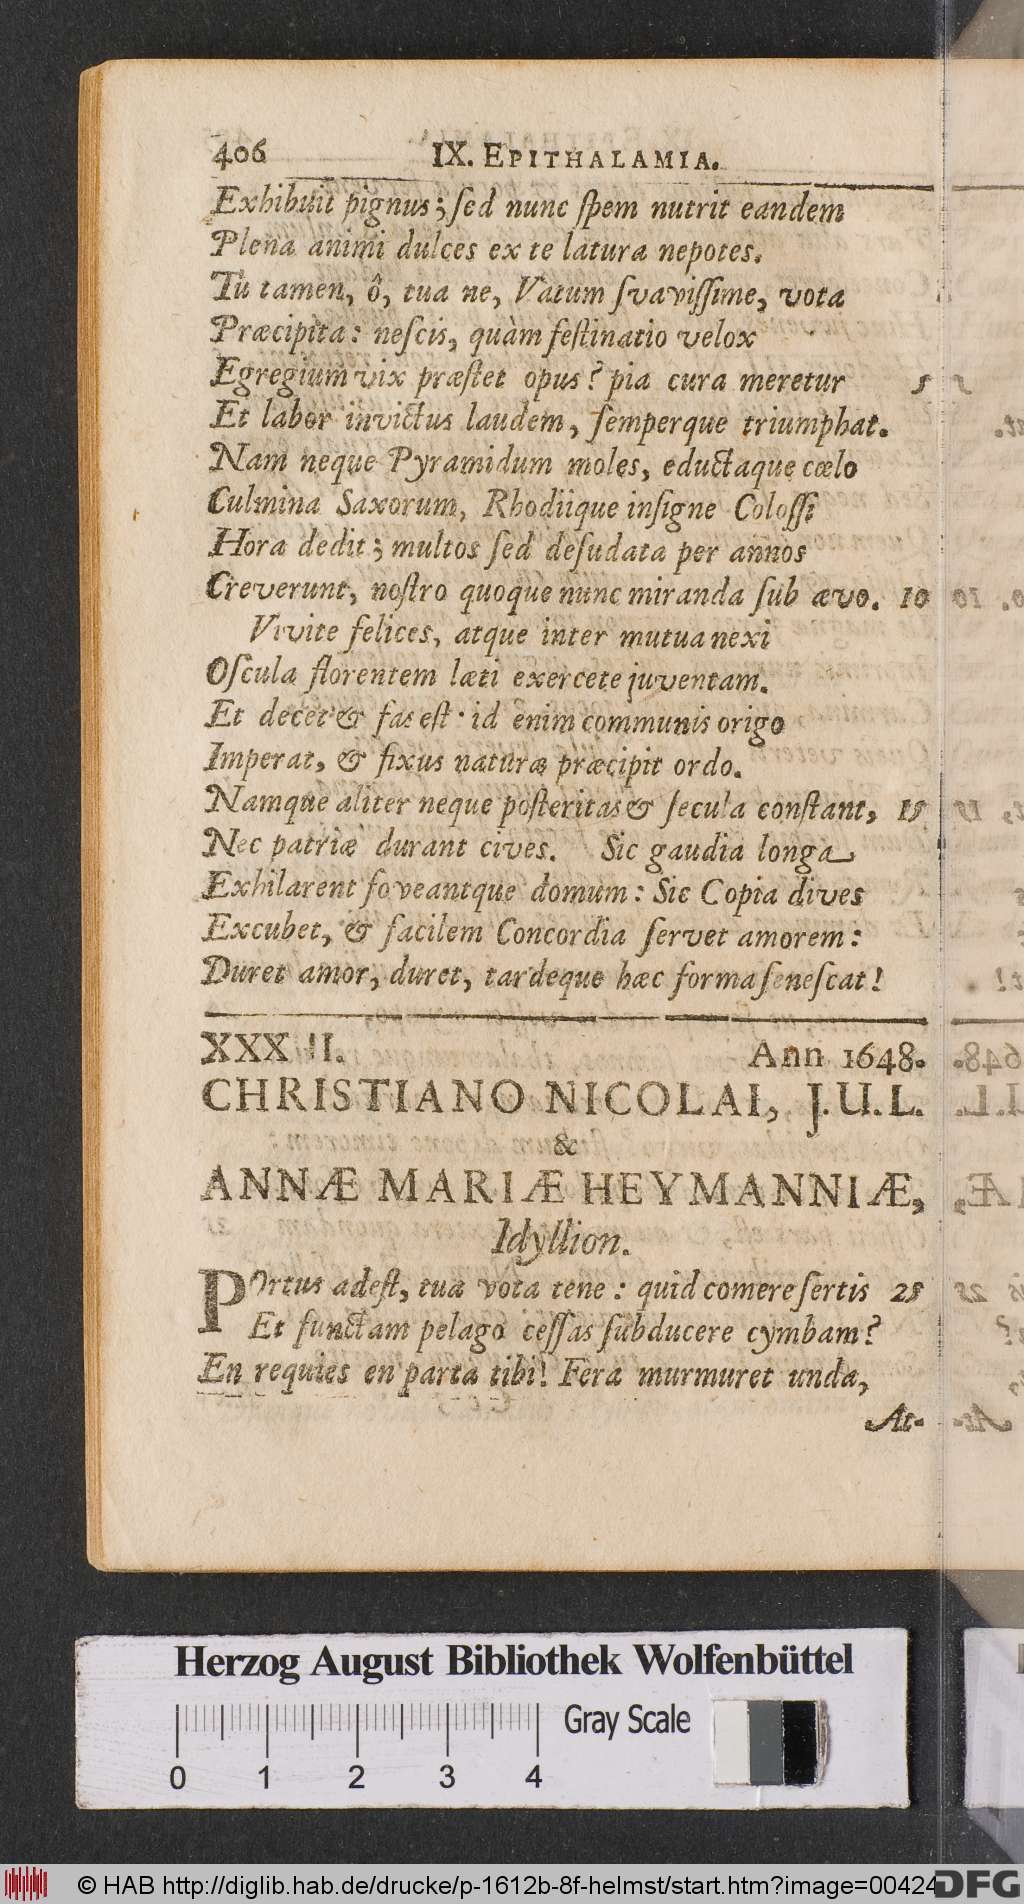 406 IX. EPITHALAMIA.
Exhibuit pignus; ſed nunc ſpem nutrit eandem
Plena animi dulces ex te latura nepotes.
Tu tamen, ô, tua ne, Vatum ſvaviſſime, vota
Præcipita: neſcis, quàm feſtinatio velox
Egregium vix præſtet opus? pia cura meretur 5
Et labor invictus laudem, ſemperque triumphat.
Nam neque Pyramidum moles, eductaque cœlo
Culmina Saxorum, Rhodiique inſigne Coloſſi
Hora dedit; multos ſed deſudata per annos
Creverunt, noſtro quoque nunc miranda ſub ævo. 10
Vivite felices, atque inter mutua nexi
Oſcula florentem læti exercete juventam.
Et decet & fas eſt: id enim communis origo
Imperat, & fixus naturæ præcipit ordo.
Namque aliter neque poſteritas & ſecula conſtant, 15
Nec patriæ durant cives. Sic gaudia longa
Exhilarent foveantque domum: Sic Copia dives
Excubet, & facilem Concordia ſervet amorem:
Duret amor, duret, tardeque hæc forma ſeneſcat!
Ann 1648.
CHRISTIANO NICOLAI, J.U.L.
&
ANNÆ MARIÆ HEYMANNIÆ,
Idyllion.
POrtus adeſt, tua vota tene: quid comere ſertis 25
Et functam pelago ceſſas ſubducere cymbam?
En requies en parta tibi! Fera murmuret unda,
At-
Herzog August Bibliothek Wolfenbüttel
Gray Scale
0 1 2 3 4
© HAB http://diglib.hab.de/drucke/p-1612b-8f-helmst/start.htm?image=00424
DFG